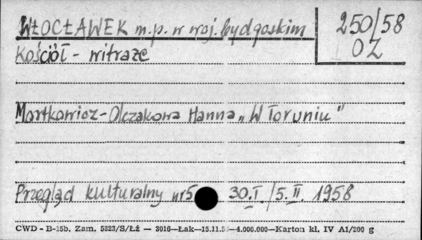 WŁOCŁAWEK m.p. w woj. bydgoskim
250/58
OZ
Kościół - witraże
Mortkowicz-Olczakowa Hanna „W Toruniu"
Przegląd kulturalny nr 5 30.I./5.II. 1958
CWD - B-15b. Zam. 5323/S/Łź — 3016—Łak—15.11.5 —4.000.000—Karton kl. IV A1/200 g